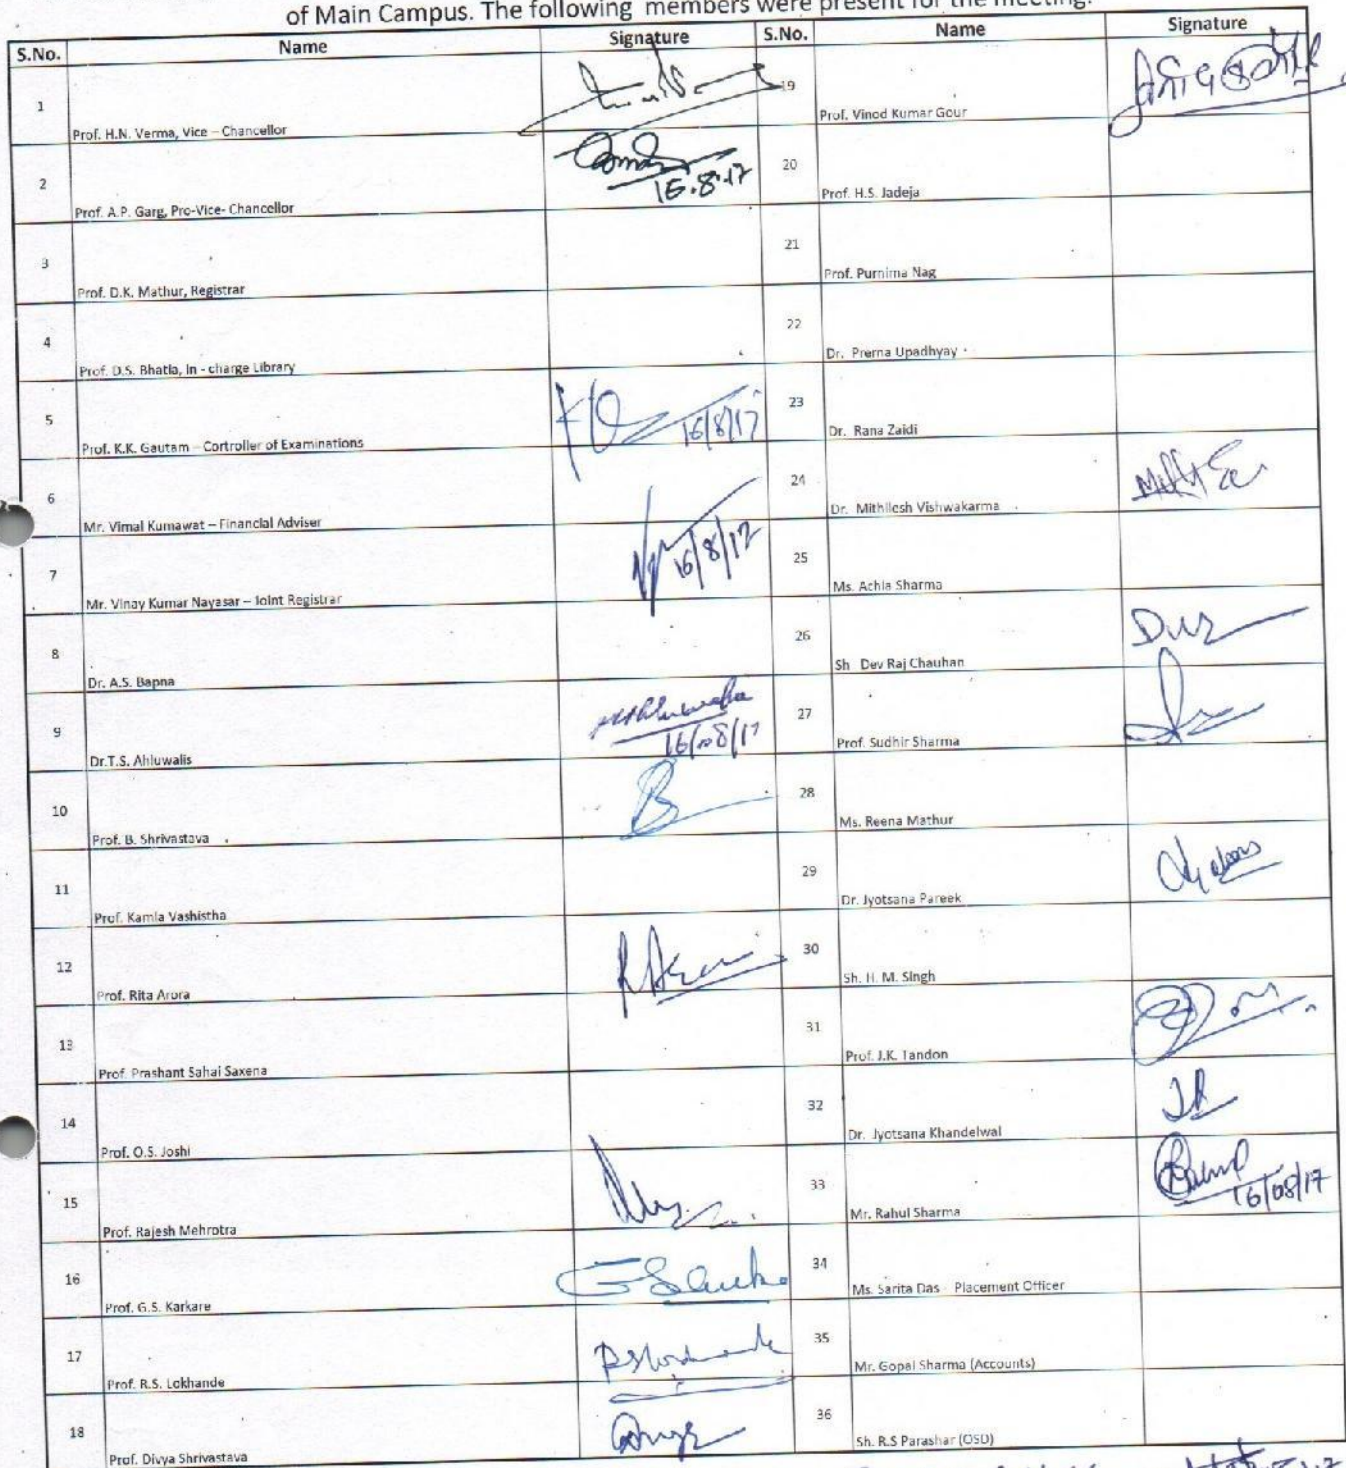 of Main Campus. The following members were present for the meeting.
S.No. Name Signature S.No. Name Signature
1 Prof. H.N. Verma, Vice – Chancellor 19 Prof. Vinod Kumar Gour
2 Prof. A.P. Garg, Pro-Vice- Chancellor 16.8.17 20 Prof. H.S. Jadeja
3 Prof. D.K. Mathur, Registrar 21 Prof. Purnima Nag
4 Prof. D.S. Bhatia, In - charge Library 22 Dr. Prerna Upadhyay
5 Prof. K.K. Gautam – Controller of Examinations 16/8/17 23 Dr. Rana Zaidi
6 Mr. Vimal Kumawat – Financial Adviser 24 Dr. Mithilesh Vishwakarma
7 Mr. Vinay Kumar Nayasar – Joint Registrar 16/8/17 25 Ms. Achla Sharma
8 Dr. A.S. Bapna 26 Sh Dev Raj Chauhan
9 Dr.T.S. Ahluwalis 16/08/17 27 Prof. Sudhir Sharma
10 Prof. B. Shrivastava 28 Ms. Reena Mathur
11 Prof. Kamla Vashistha 29 Dr. Jyotsana Pareek
12 Prof. Rita Arora 30 Sh. H. M. Singh
13 Prof. Prashant Sahai Saxena 31 Prof. J.K. Tandon
14 Prof. O.S. Joshi 32 Dr. Jyotsana Khandelwal
15 Prof. Rajesh Mehrotra 33 Mr. Rahul Sharma 16/08/17
16 Prof. G.S. Karkare 34 Ms. Sarita Das - Placement Officer
17 Prof. R.S. Lokhande 35 Mr. Gopal Sharma (Accounts)
18 Prof. Divya Shrivastava 36 Sh. R.S Parashar (OSD)